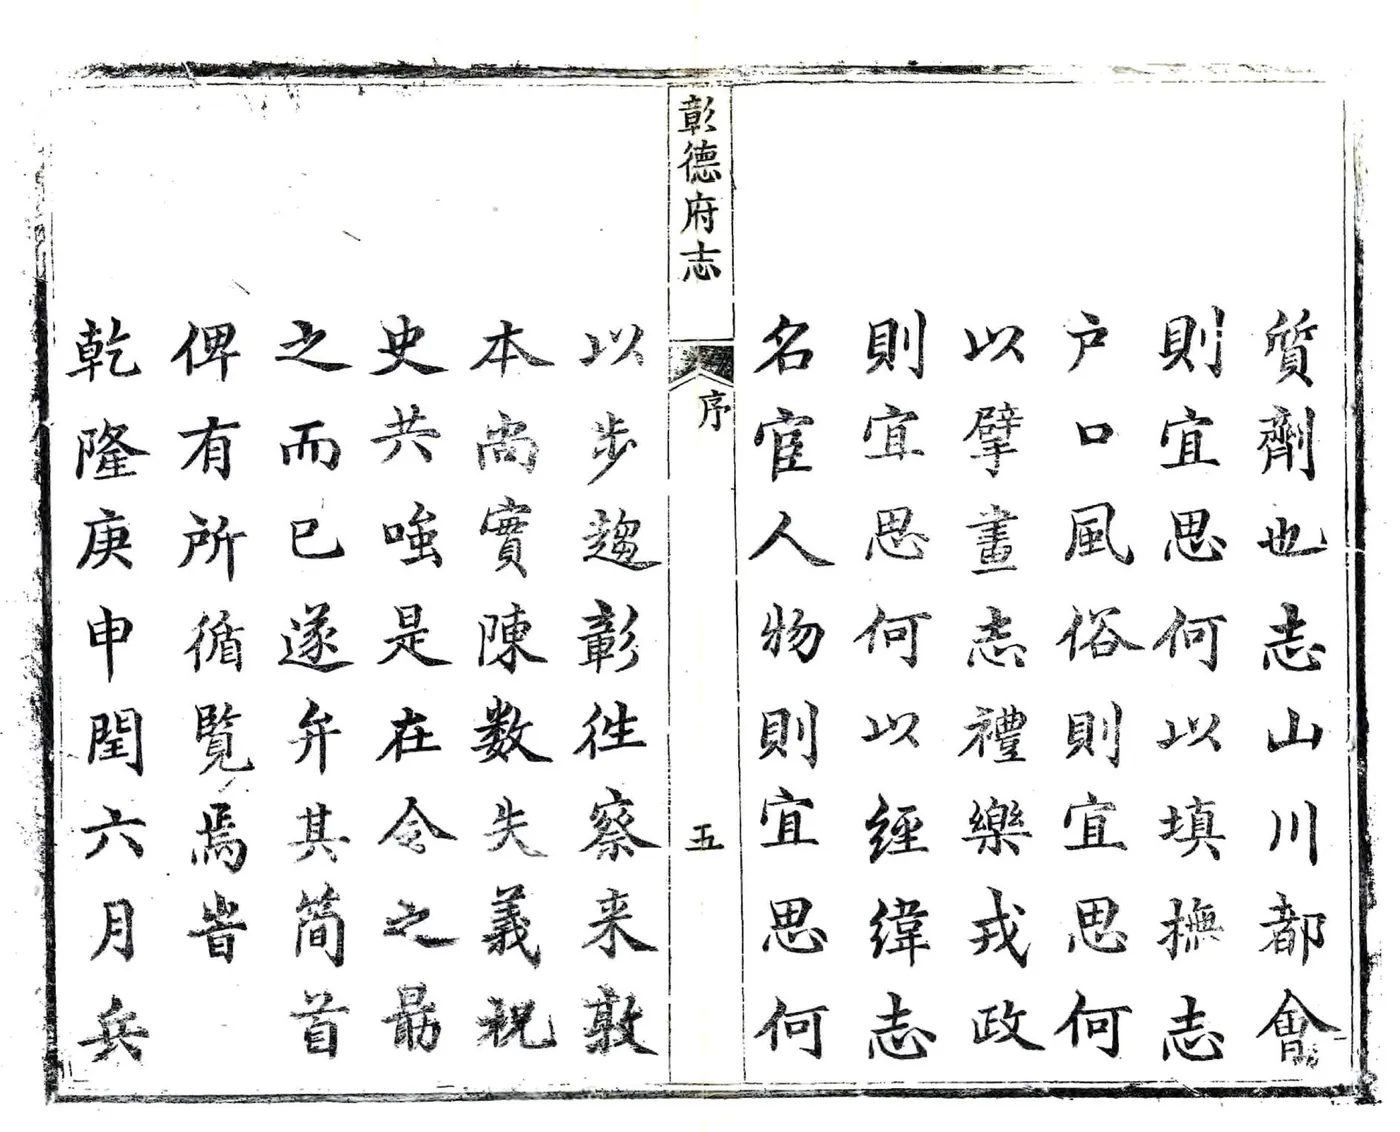 質劑也志山川都會
則宜思何以填撫志
户口風俗則宜思何
以擘畫志禮樂戎政
則宜思何以經緯志
名宦人物則宜思何
彰德府志
序
五
以步趨彰徃察来敦
本尚實陳数失義祝
史共嗤是在令之勗
之而已遂弁其簡首
俾有所循覽焉旹
乾隆庚申閏六月兵